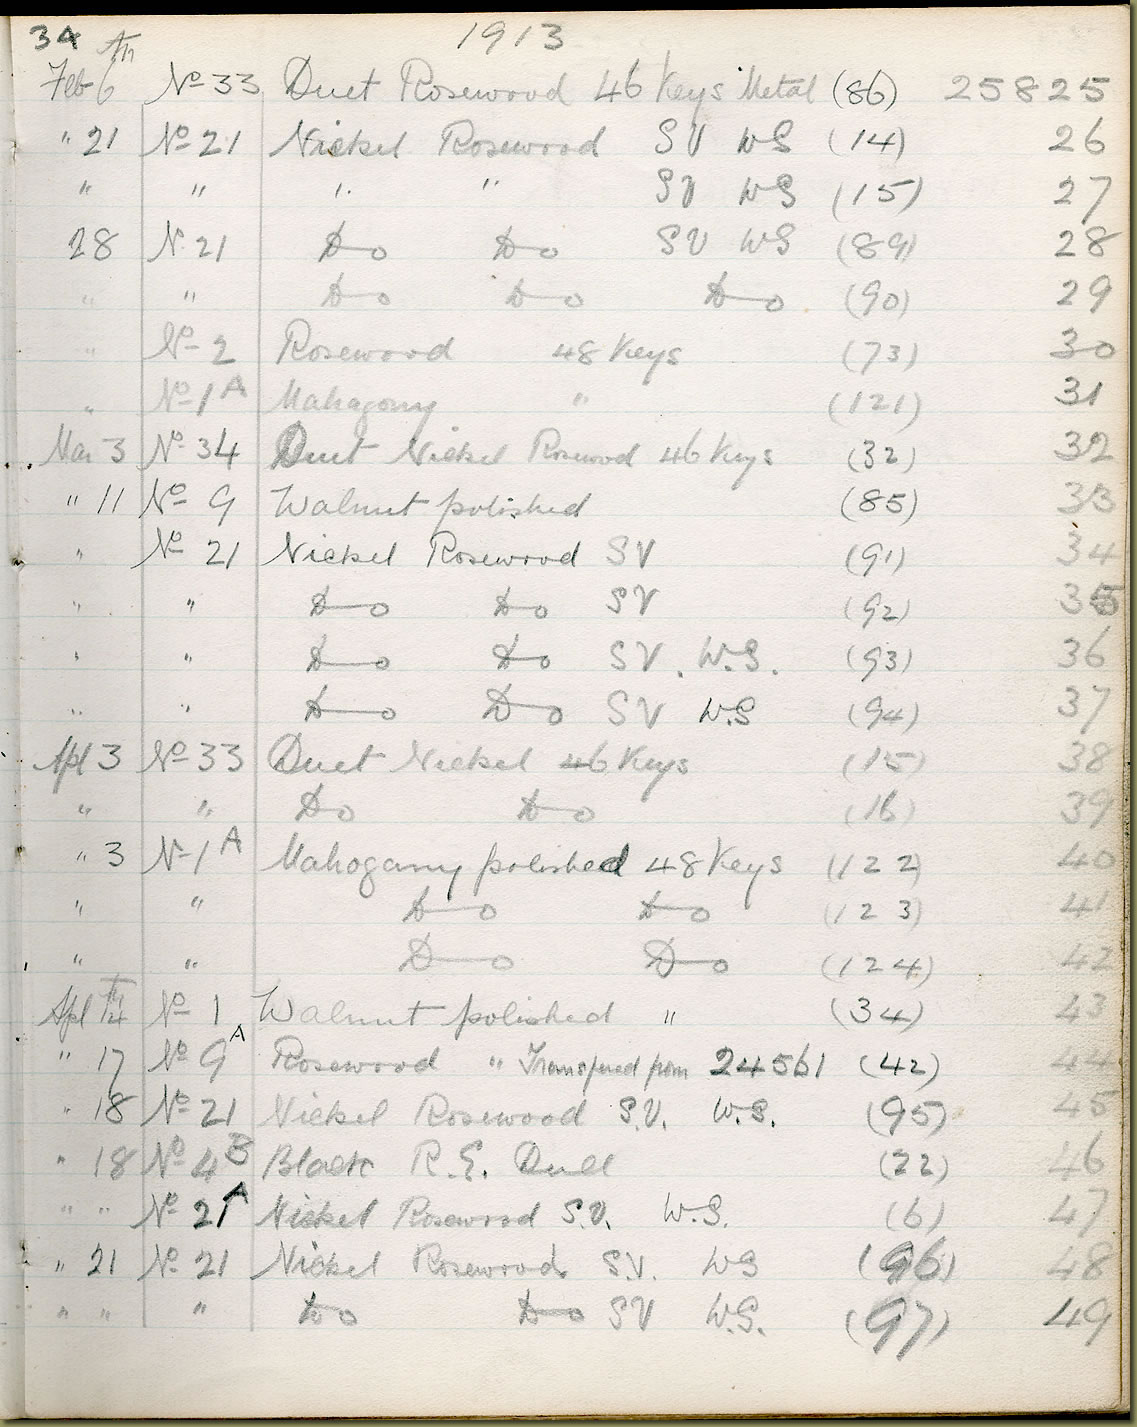 34 1913
Feb 6th No 33 Duet Rosewood 46 Keys Metal (86) 25825
" 21 No 21 Nickel Rosewood SV WS (14) 26
" " " " SV WS (15) 27
28 N 21 Do Do SV WS (89) 28
" " Do Do Do (90) 29
" No 2 Rosewood 48 Keys (73) 30
" No 1A Mahagony " (121) 31
Mar 3 No 34 Duet Nickel Rosewood 46 Keys (32) 32
" 11 No 9 Walnut polished (85) 33
" No 21 Nickel Rosewood SV (91) 34
" " Do Do SV (92) 35
" " Do Do SV. W.S. (93) 36
" " Do Do SV W.S (94) 37
Apl 3 No 33 Duet Nickel 46 Keys (15) 38
" " Do Do (16) 39
" 3 No 1A Mahogany polished 48 Keys (122) 40
" " Do Do (123) 41
" " Do Do (124) 42
Apl 14th No 1 Walnut polished " (34) 43
" 17 No 9A Rosewood " Transfered from 24561 (42) 44
" 18 No 21 Nickel Rosewood S.V. W.S. (95) 45
" 18 No 4B Black R.E. Dull (22) 46
" " No 21A Nickel Rosewood S.V. W.S. (6) 47
" 21 No 21 Nickel Rosewood S.V. WS (96) 48
" " " Do Do SV W.S. (97) 49